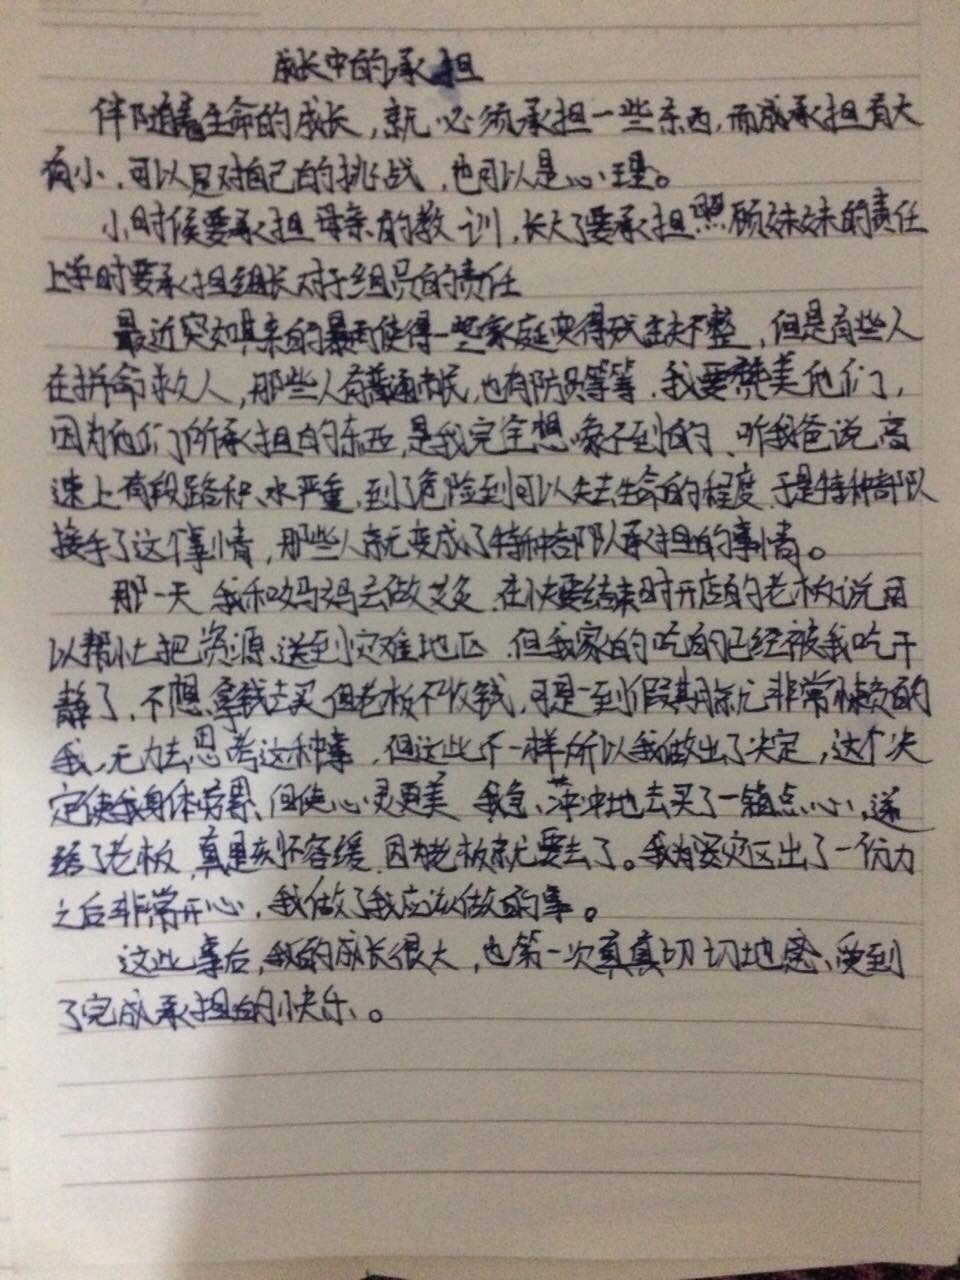 成长中的承担
伴随着生命的成长，就必须承担一些东西，而成承担有大
有小，可以是对自己的挑战，也可以是心理。
小时候要承担母亲的教训，长大了要承担照顾妹妹的责任
上学时要承担组长对于组员的责任
最近突如其来的暴雨使得一些家庭变得残缺不整，但是有些人
在拼命救人，那些人有普通市民，也有防员等等，我要赞美他们，
因为他们所承担的东西，是我完全想象不到的、听我爸说，高
速上有段路积水严重，到了危险到可以失去生命的程度，于是特种部队
接手了这个事情，那些人就变成了特种部队承担的事情。
那一天我和妈妈去做艾灸，在快要结束时开店的老板说可
以帮忙把资源送到灾难地区，但我家的吃的已经被我吃干
静了，不想拿钱去买但老板不收钱，可是一到假期就非常懒的
我，无力去思考这种事，但这些不一样所以我做出了决定，这个决
定使我身体劳累，但使心灵更美 我急冲冲地去买了一箱点心，递
给了老板，真是刻不容缓，因为老板就要去了。我为受灾区出了一份力
之后非常开心，我做了我应该做的事。
这些事后，我的成长很大，也第一次真真切切地感受到
了完成承担的快乐。